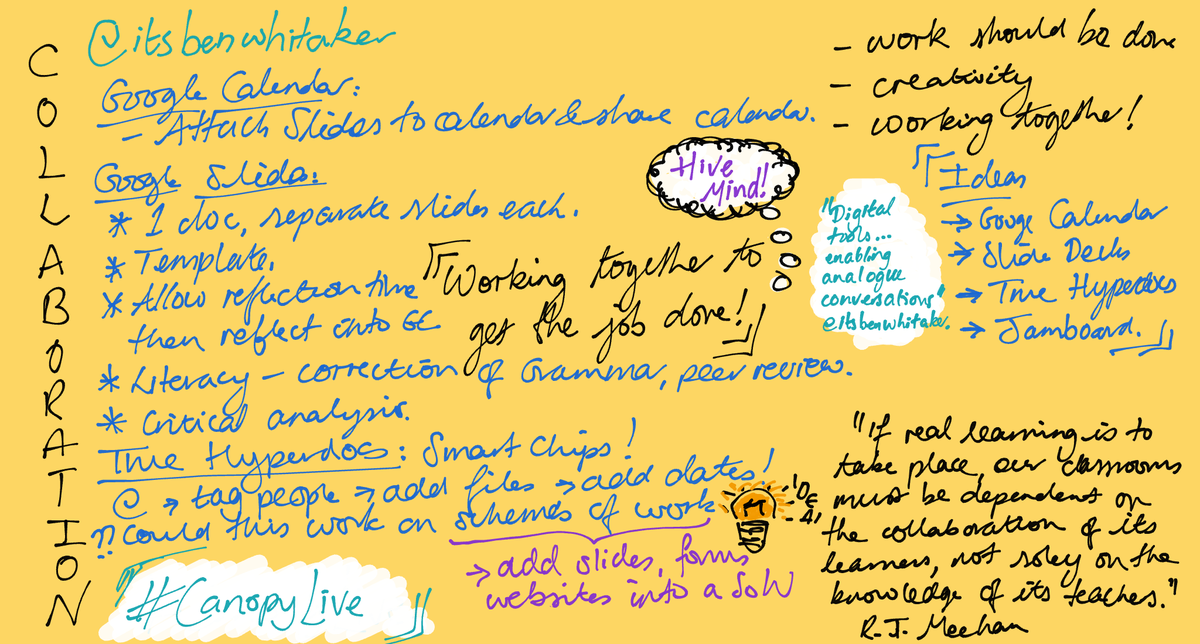 COLLABORATION
@itsbenwhitaker
Google Calendar:
- Attach Slides to calendar & share calendar.
Google Slides:
* 1 doc, separate slides each.
* Template.
* Allow reflection time
then reflect into GC
* Literacy - correction of Grammar, peer review.
* Critical analysis.
True Hyperdocs: Smart Chips!
@ → tag people → add files → add dates!
?? Could this work on schemes of work
→ add slides, forms
websites into a SoW
#CanopyLive
Hive
Mind!
「Working together to
get the job done!」
- work should be done
- creativity
- working together!
"Digital
tools...
enabling
analogue
conversations"
@itsbenwhitaker.
「Ideas
→ Googe Calendar
→ Slide Decks
→ True Hyperdocs
→ Jamboard.」
IDEA
"If real learning is to
take place, our classrooms
must be dependent on
the collaboration of its
learners, not soley on the
knowledge of its teaches."
R.J. Meehan